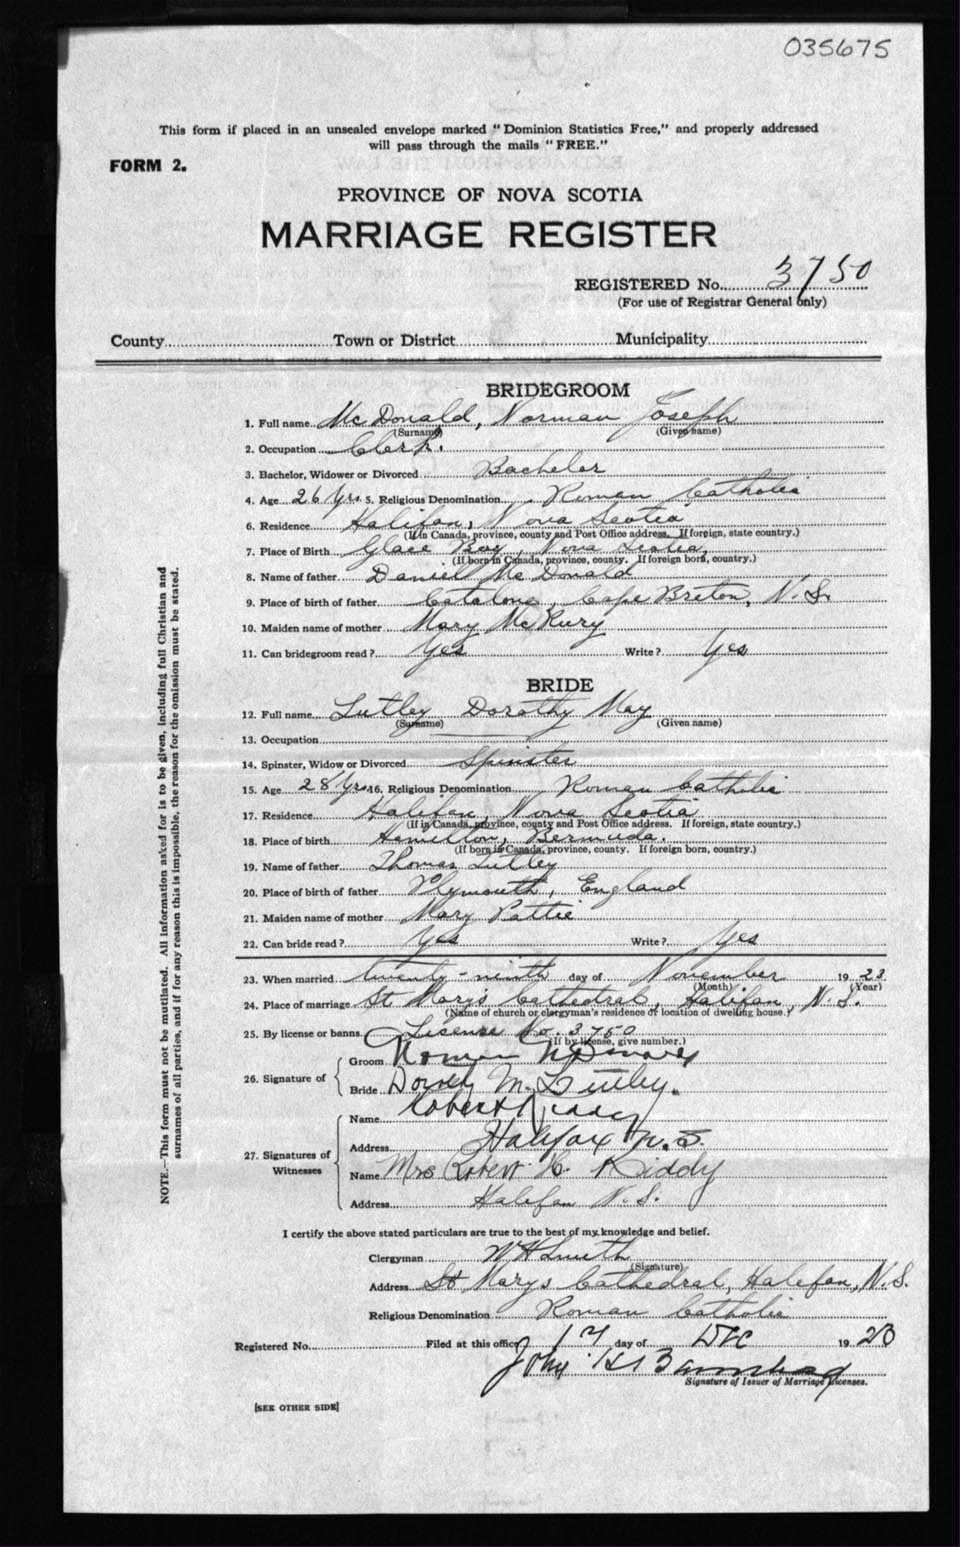 035675
This form if placed in an unsealed envelope marked "Dominion Statistics Free," and properly addressed
will pass through the mails "FREE."
FORM 2.
PROVINCE OF NOVA SCOTIA
MARRIAGE REGISTER
REGISTERED No. 3750
(For use of Registrar General only)
County Town or District Municipality
BRIDEGROOM
1. Full name McDonald, Norman Joseph
(Surname) (Given name)
2. Occupation Clerk.
3. Bachelor, Widower or Divorced Bachelor
4. Age 26 Yrs. 5. Religious Denomination Roman Catholic
6. Residence Halifax, Nova Scotia
(If in Canada, province, county and Post Office address. If foreign, state country.)
7. Place of Birth Glace Bay, Nova Scotia,
(If born in Canada, province, county. If foreign born, country.)
8. Name of father Daniel McDonald
9. Place of birth of father Catalone, Cape Breton, N.S.
10. Maiden name of mother Mary
11. Can bridegroom read? Yes Write? Yes
BRIDE
12. Full name Lutley Dorothy May
(Surname) (Given name)
13. Occupation
14. Spinster, Widow or Divorced Spinster
15. Age 28 Yrs 16. Religious Denomination Roman Catholic
17. Residence Halifax, Nova Scotia
(If in Canada, province, county and Post Office address. If foreign, state country.)
18. Place of birth Hamilton, Bermuda.
(If born in Canada, province, county. If foreign born, country.)
19. Name of father Thomas Lutley
20. Place of birth of father Plymouth, England
21. Maiden name of mother Mary Pattie
22. Can bride read? Yes Write? Yes
23. When married twenty-ninth day of November 1923
(Month) (Year)
24. Place of marriage St Mary's Cathedral, Halifax, N.S.
(Name of church or clergyman's residence or location of dwelling house.)
25. By license or banns. License No. 3750
(If by license, give number.)
26. Signature of
Groom Norman McDonald
Bride Dorothy M. Lutley.
27. Signatures of Witnesses
Name Robert Kiddy
Address Halifax N.S.
Name Mrs Robert H. Kiddy
Address Halifax N.S.
I certify the above stated particulars are true to the best of my knowledge and belief.
Clergyman W H Smith
(Signature)
Address St Marys Cathedral, Halifax, N.S.
Religious Denomination Roman Catholic
Registered No. Filed at this office 17 day of Dec 1923
John
Signature of Issuer of Marriage Licenses.
[SEE OTHER SIDE]
NOTE.—This form must not be mutilated. All information asked for is to be given, including full Christian and
surnames of all parties, and if for any reason this is impossible, the reason for the omission must be stated.